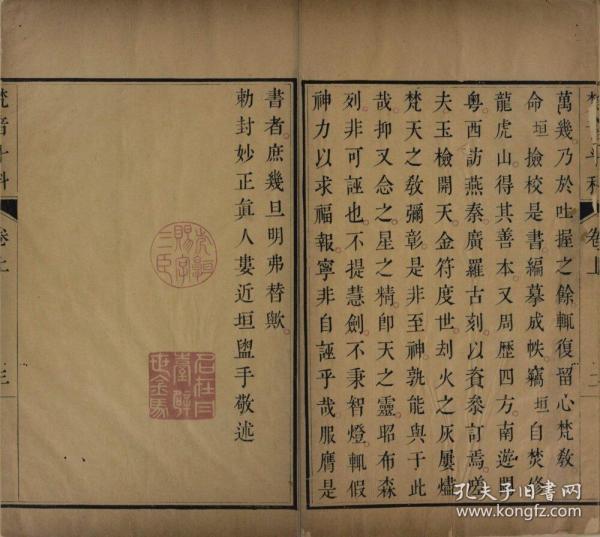 萬幾乃於吐握之餘輒復留心梵教
命垣撿校是書編摹成帙竊垣自焚修
龍虎山得其善本又周歷四方南遊閩
粵西訪燕秦廣羅古刻以資叅訂焉嗟
夫玉檢開天金符度世刦火之灰屢燼
梵天之教彌彰是非至神孰能與于此
哉抑又念之星之精即天之靈昭布森
列非可誣也不提慧劍不秉智燈輒假
神力以求福報寧非自誣乎哉服膺是
書者庶幾旦明弗替歟
勅封妙正眞人婁近垣盥手敬述
卷上
二
梵音斗科
卷上
三
孔夫子旧书网